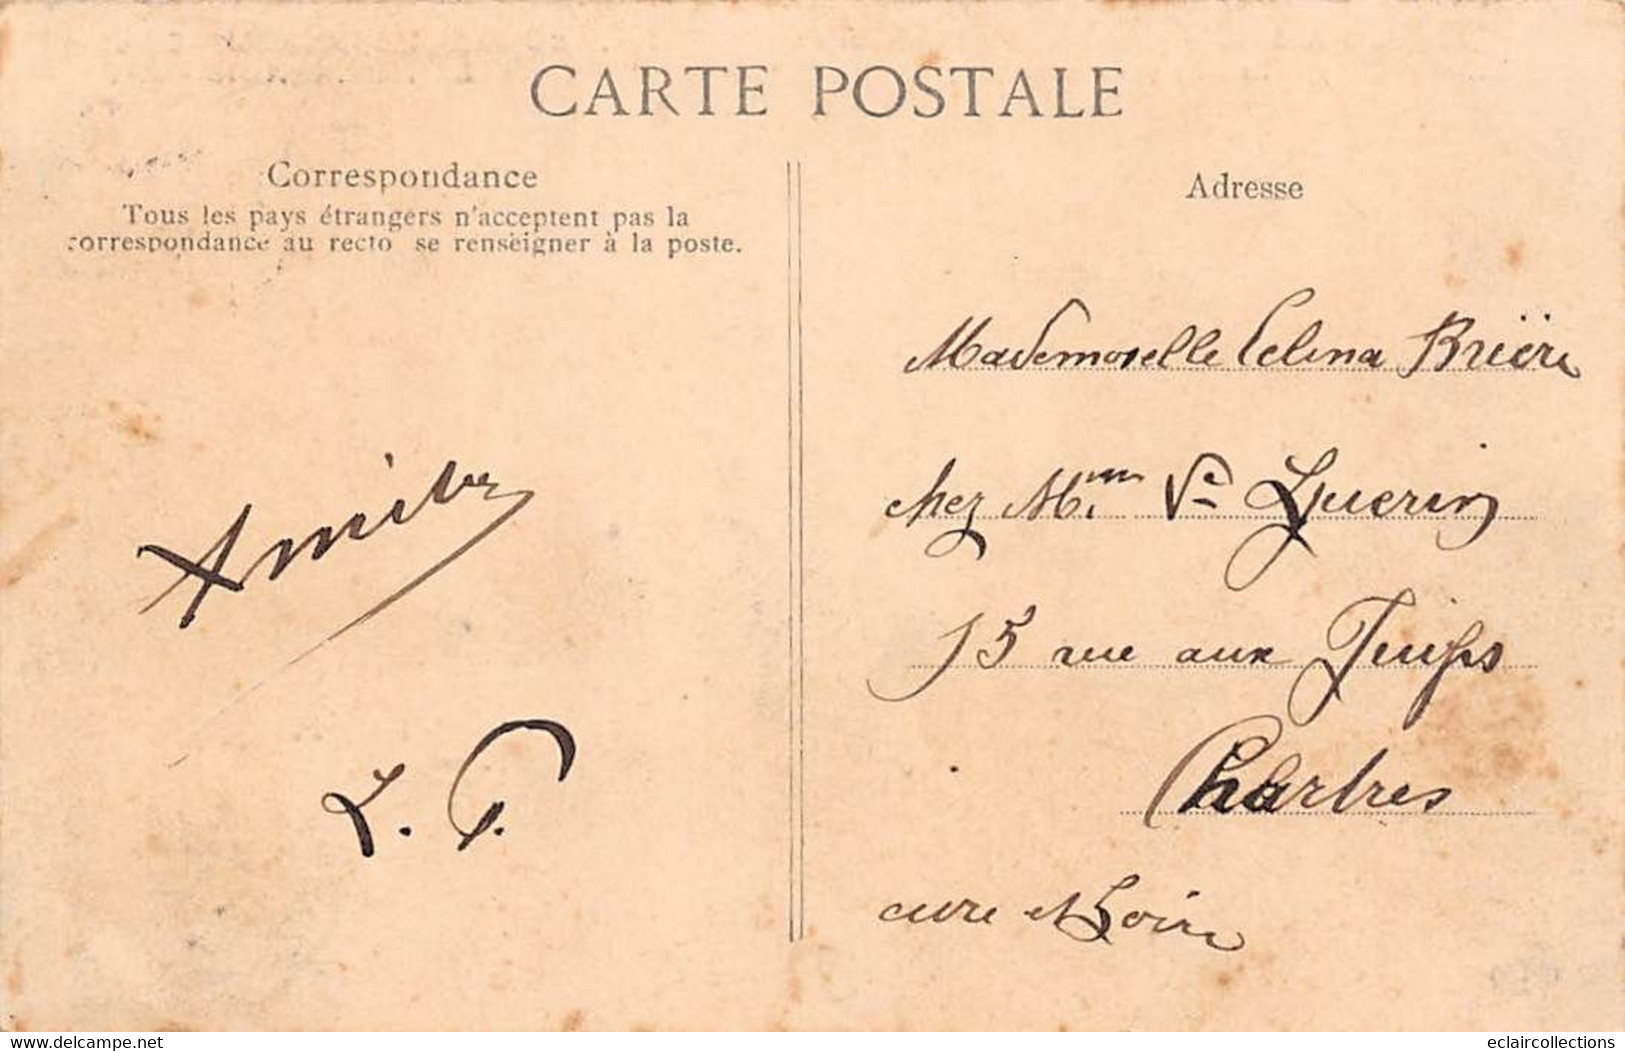 CARTE POSTALE
Correspondance
Tous les pays étrangers n'acceptent pas la
correspondance au recto se renseigner à la poste.
Amitiés
L. P.
Adresse
Mademoiselle Celina Brière
chez Mme Ve Guerin
15 rue aux Juifs
Chartres
eure et Loire
delcampe.net
eclaircollections